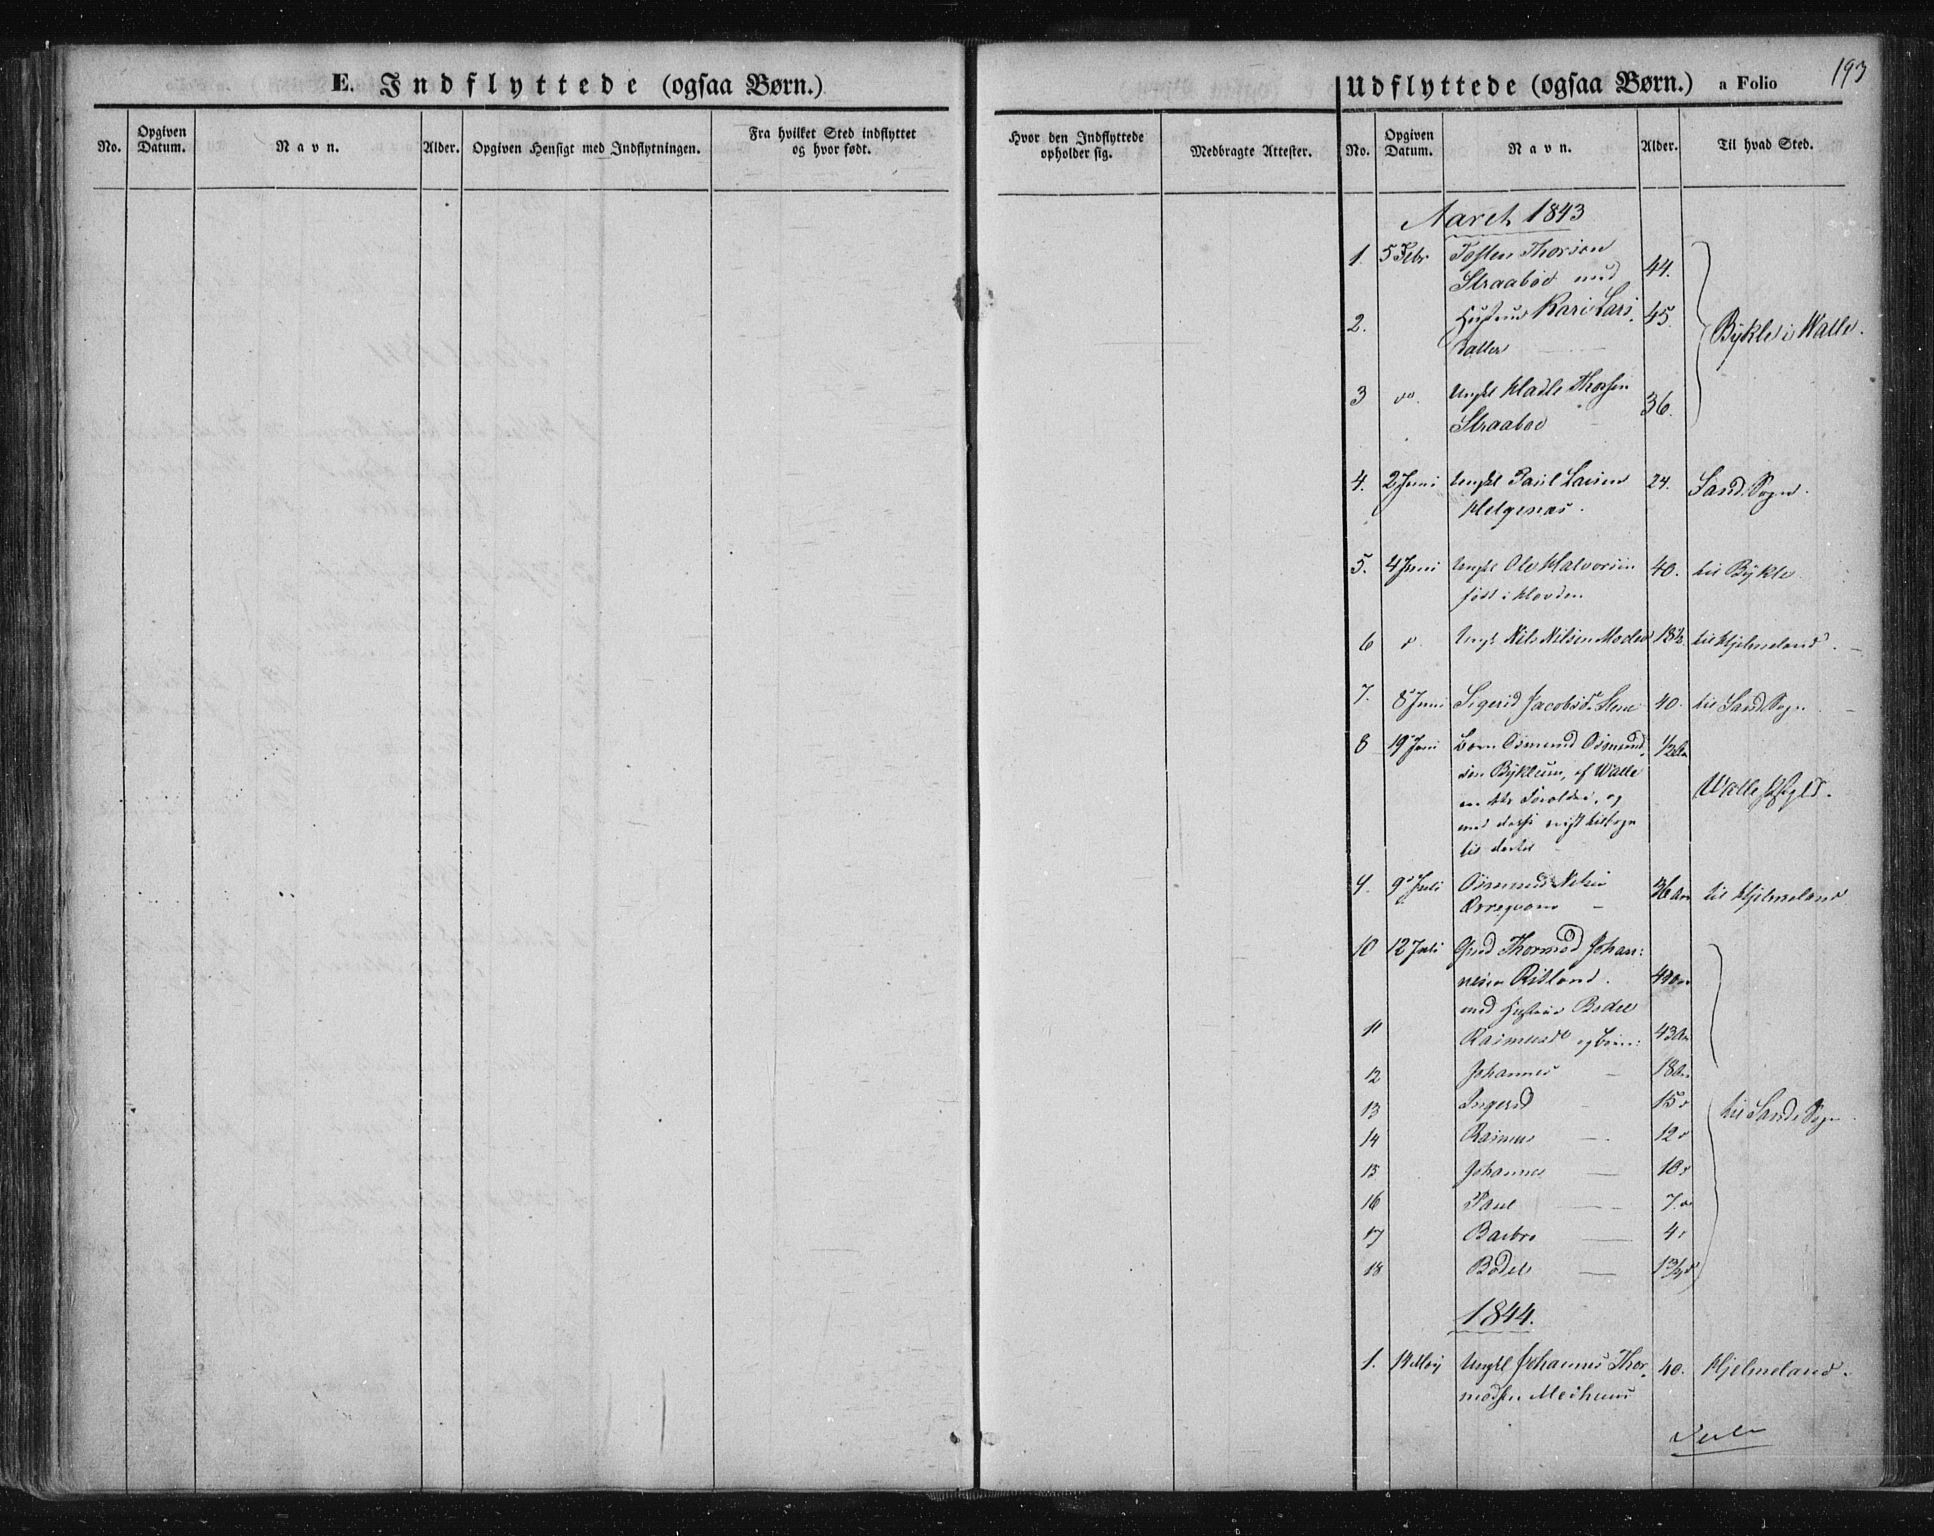 E. Indflyttede (ogsaa Børn.)
No. Opgiven Datum. Navn. Alder. Opgiven Hensigt med Indflytningen. Fra hvilket Sted indflyttet og hvor født.
Hvor den Indflyttede opholder sig. Medbragte Attester.
Udflyttede (ogsaa Børn.) a Folio 193
No. Opgiven Datum. Navn. Alder. Til hvad Sted.
Aaret 1843
1. 5 Febr Tosten Thorsen 44.
Straaboe med
2. Hustrue Kari Lars 45. Bykle i Walle.
datter
3 do. Ungkl Thorsen 36.
Straaboe
4. 2 Juni Ungkl Paul Larsen 24. Sand Sogn.
Helgenæs.
5. 4 Juni Ungkl Ole Halvorsen 40. til Bykle
født i
6 Ungk Nils Nilsen Moe til Hjelmeland.
7. 8 Juni Sigerid Jacobsd. 40. til Sand Sogn
8 19 Juni Barn Osmund Osmund 1/2
sen Byklum, af Walle
Forældre, og Walle
9. 9 Juli Osmund Nilsen 36 til Hjelmeland
10 12 Juli Thormod Johan:
nesen Ritland.
med Hustrue Bodel
11 Rasmusd og Børn: 43
12 Johannes — 18
13 Ingerid 15 til Sand Sogn
14 Rasmus — 12
15 Johannes — 10
16 Paul — 7
17 Barbro — 4
18 Bodel —
1844.
1. 14 Maj Ungkl Johannes Thor 40. Hjelmeland.
modsen